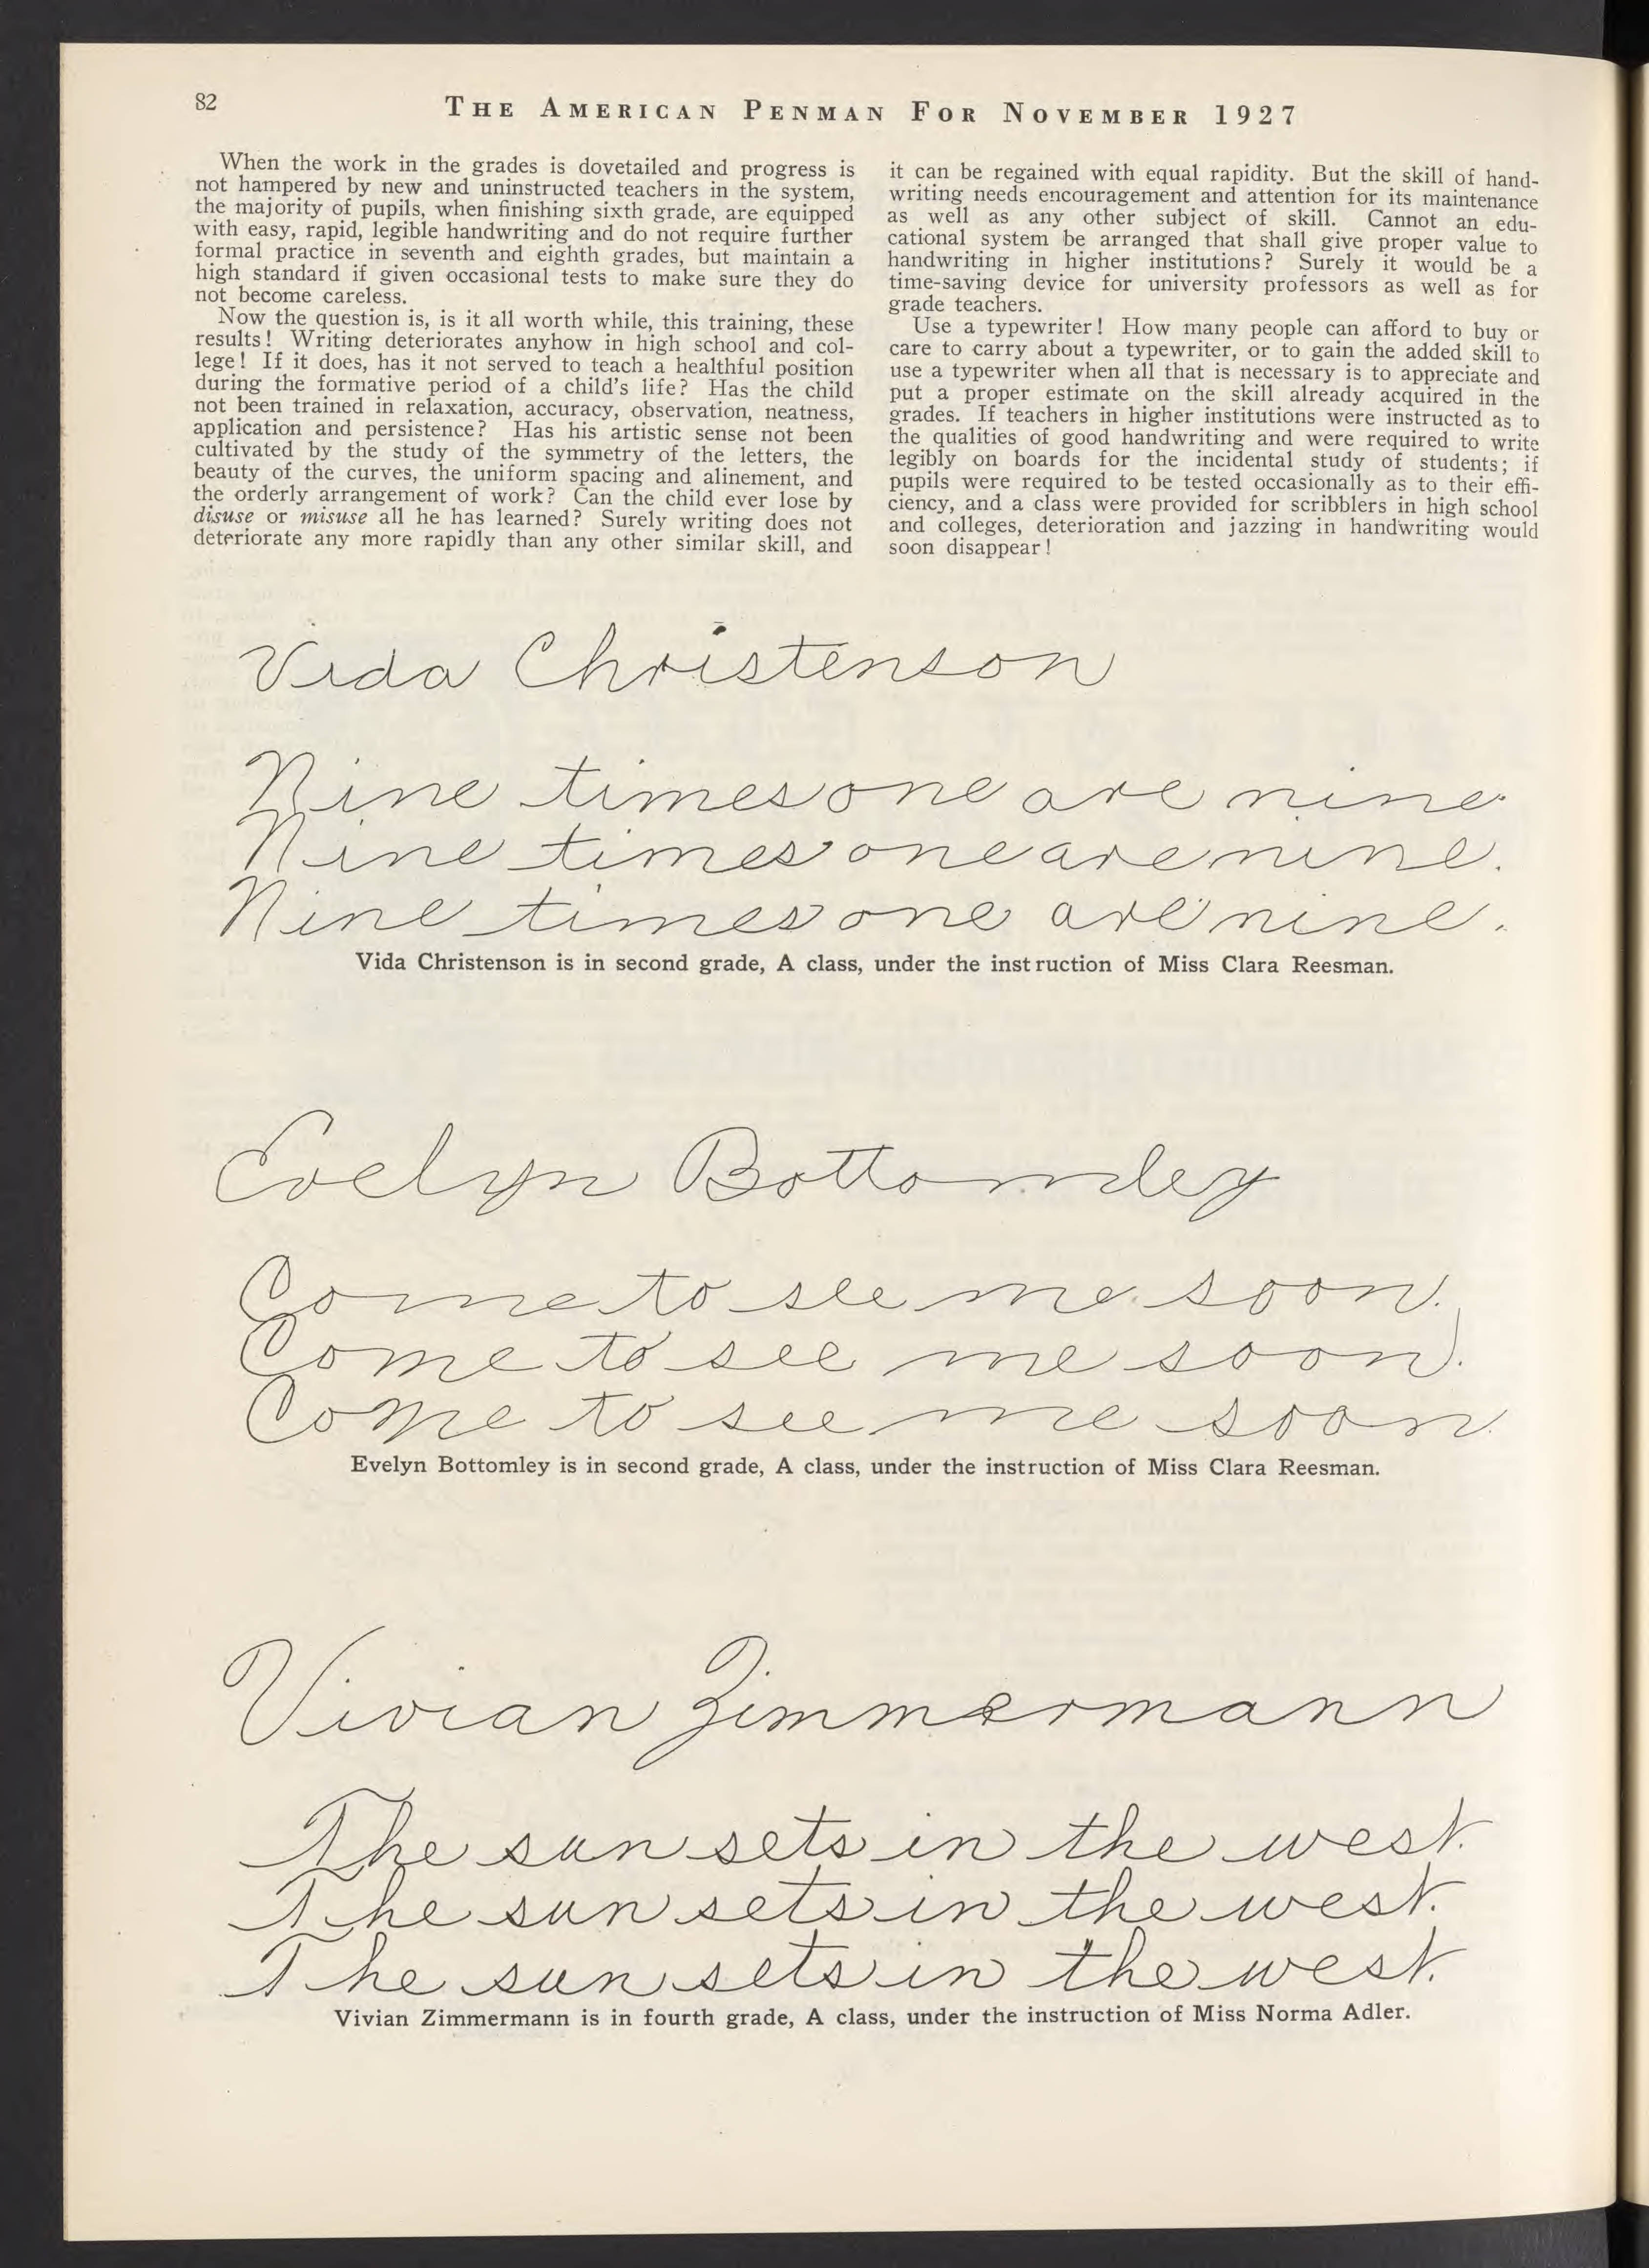 82
THE AMERICAN PENMAN FOR NOVEMBER 1927
When the work in the grades is dovetailed and progress is
not hampered by new and uninstructed teachers in the system,
the majority of pupils, when finishing sixth grade, are equipped
with easy, rapid, legible handwriting and do not require further
formal practice in seventh and eighth grades, but maintain a
high standard if given occasional tests to make sure they do
not become careless.
Now the question is, is it all worth while, this training, these
results! Writing deteriorates anyhow in high school and col-
lege! If it does, has it not served to teach a healthful position
during the formative period of a child's life? Has the child
not been trained in relaxation, accuracy, observation, neatness,
application and persistence? Has his artistic sense not been
cultivated by the study of the symmetry of the letters, the
beauty of the curves, the uniform spacing and alinement, and
the orderly arrangement of work? Can the child ever lose by
disuse or misuse all he has learned? Surely writing does not
deteriorate any more rapidly than any other similar skill, and
it can be regained with equal rapidity. But the skill of hand-
writing needs encouragement and attention for its maintenance
as well as any other subject of skill. Cannot an edu-
cational system be arranged that shall give proper value to
handwriting in higher institutions? Surely it would be a
time-saving device for university professors as well as for
grade teachers.
Use a typewriter! How many people can afford to buy or
care to carry about a typewriter, or to gain the added skill to
use a typewriter when all that is necessary is to appreciate and
put a proper estimate on the skill already acquired in the
grades. If teachers in higher institutions were instructed as to
the qualities of good handwriting and were required to write
legibly on boards for the incidental study of students; if
pupils were required to be tested occasionally as to their effi-
ciency, and a class were provided for scribblers in high school
and colleges, deterioration and jazzing in handwriting would
soon disappear!
Vida Christenson
Nine times one are nine.
Nine times one are nine.
Nine times one are nine.
Vida Christenson is in second grade, A class, under the instruction of Miss Clara Reesman.
Evelyn Bottomley
Come to see me soon.
Come to see me soon.
Come to see me soon.
Evelyn Bottomley is in second grade, A class, under the instruction of Miss Clara Reesman.
Vivian Zimmermann
The sun sets in the west.
The sun sets in the west.
The sun sets in the west.
Vivian Zimmermann is in fourth grade, A class, under the instruction of Miss Norma Adler.